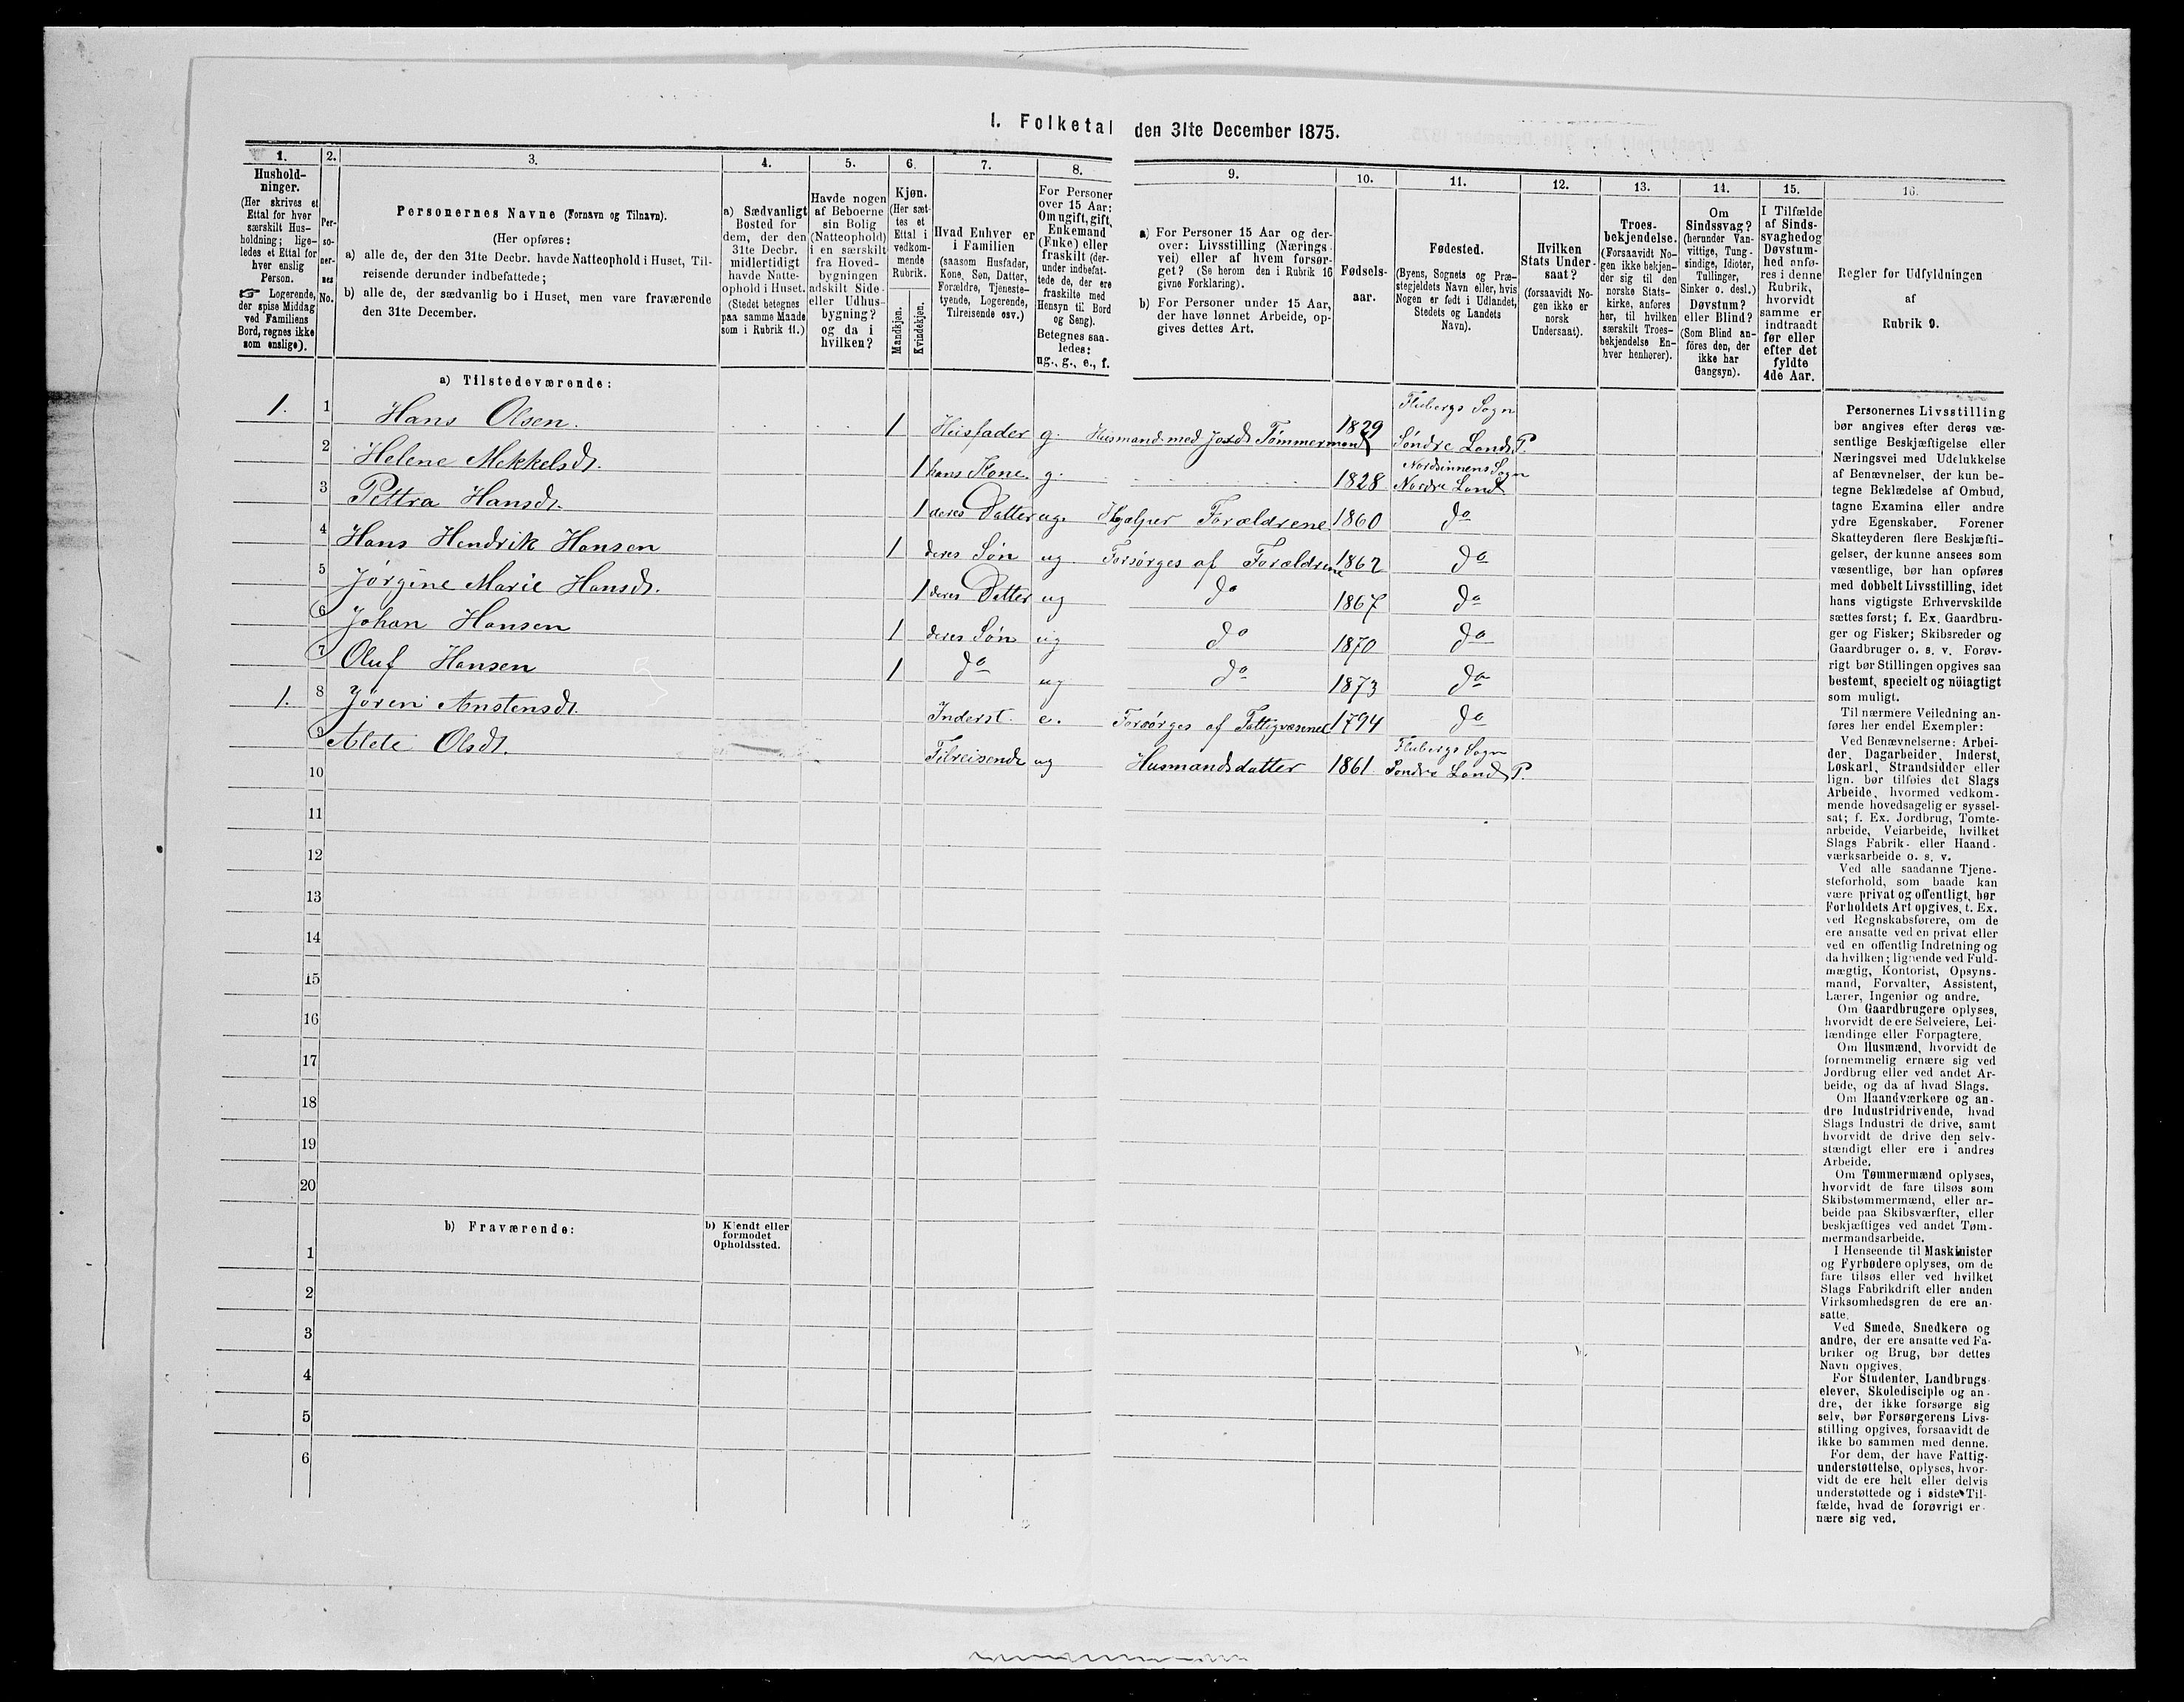 I. Folketal den 31te December 1875.
1.
Hushold-
ninger.
(Her skrives et
Ettal for hver
særskilt Hus-
holdning; lige-
ledes et Ettal for
hver enslig
Person.
☞ Logerende,
der spise Middag
ved Familiens
Bord, regnes ikke
som enslige).
2.
Per-
so-
ner-
nes
No.
3.
Personernes Navne (Fornavn og Tilnavn).
(Her opføres:
a) alle de, der den 31te Decbr. havde Natteophold i Huset, Til-
reisende derunder indbefattede;
b) alle de, der sædvanlig bo i Huset, men vare fraværende
den 31te December.
4.
a) Sædvanligt
Bosted for
dem, der den
31te Decbr.
midlertidigt
havde Natte-
ophold i Huset.
(Stedet betegnes
paa samme Maade
som i Rubrik 11.)
5.
Havde nogen
af Beboerne
sin Bolig
(Natteophold)
i en særskilt
fra Hoved-
bygningen
adskilt Side-
eller Udhus-
bygning?
og da i
hvilken?
6.
Kjøn.
(Her sæt-
tes et
Ettal i
vedkom-
mende
Rubrik.
Mandkjøn.
Kvindekjøn.
7.
Hvad Enhver er
i Familien
(saasom Husfader,
Kone, Søn, Datter,
Forældre, Tjeneste-
tyende, Logerende,
Tilreisende osv.)
8.
For Personer
over 15 Aar:
Om ugift, gift,
Enkemand
(Enke) eller
fraskilt (der-
under indbefat-
tede de, der ere
fraskilte med
Hensyn til Bord
og Seng).
Betegnes saa-
ledes:
ug., g., e., f.
9.
a) For Personer 15 Aar og der-
over: Livsstilling (Nærings-
vei) eller af hvem forsør-
get? (Se herom den i Rubrik 16
givne Forklaring).
b) For Personer under 15 Aar,
der have lønnet Arbeide, op-
gives dettes Art.
10.
Fødsels-
aar.
11.
Fødested.
(Byens, Sognets og Præ-
stegjeldets Navn eller, hvis
Nogen er født i Udlandet,
Stedets og Landets
Navn).
12.
Hvilken
Stats Under-
saat?
(forsaavidt No-
gen ikke er
norsk
Undersaat).
13.
Troes-
bekjendelse.
(Forsaavidt No-
gen ikke bekjen-
der sig til den
norske Stats-
kirke, anføres
her, til hvilken
særskilt Troes-
bekjendelse En-
hver henhører).
14.
Om
Sindssvag?
(herunder Van-
vittige, Tung-
sindige, Idioter,
Tullinger,
Sinker o. desl.)
Døvstum?
eller Blind?
(Som Blind an-
føres den, der
ikke har
Gangsyn).
15.
I Tilfælde
af Sinds-
svaghed og
Døvstum-
hed anfø-
res i denne
Rubrik,
hvorvidt
samme er
indtraadt
før eller
efter det
fyldte
4de Aar.
16.
Regler for Udfyldningen
af
Rubrik 9.
a) Tilstedeværende:
1. 1 Hans Olsen. 1 Husfader g. Husmand med Jord Tømmermand 1829 Flubergs Sogn Søndre Lands P.
2 Helene Mekkelsdt. 1 hans Kone. g. 1828 Nordsinnens Sogn Nordre Land
3 Pettra Hansdt. 1 deres Datter ug. Hjælper Forældrene 1860 do
4 Hans Hendrik Hansen 1 deres Søn ug. Forsørges af Forældrene 1862 do
5 Jørgine Marie Hansdt. 1 deres Datter ug do 1867 do
6 Johan Hansen 1 deres Søn ug do 1870 do
7 Oluf Hansen 1 do ug do 1873 do
1. 8 Jøren Anstensdt. Inderst. e. Forsørges af Fattigvæsenet 1794 do
9 Alete Olsdt. Tilreisende ug Husmandsdatter 1861 Flubergs Sogn Søndre Lands P.
10
11
12
13
14
15
16
17
18
19
20
b) Fraværende:
b) Kjendt eller
formodet
Opholdssted.
1
2
3
4
5
6
Personernes Livsstilling
bør angives efter deres væ-
sentlige Beskjæftigelse eller
Næringsvei med Udelukkelse
af Benævnelser, der kun be-
tegne Beklædelse af Ombud,
tagne Examina eller andre
ydre Egenskaber. Forener
Skatteyderen flere Beskjæfti-
gelser, der kunne ansees som
væsentlige, bør han opføres
med dobbelt Livsstilling, idet
hans vigtigste Erhvervskilde
sættes først; f. Ex. Gaardbru-
ger og Fisker; Skibsreder og
Gaardbruger o. s. v. Forøv-
rigt bør Stillingen opgives saa
bestemt, specielt og nöiagtigt
som muligt.
Til nærmere Veiledning an-
føres her endel Exempler:
Ved Benævnelserne: Arbei-
der, Dagarbeider, Inderst,
Løskarl, Strandsidder eller
lign. bør tilføies det Slags
Arbeide, hvormed vedkom-
mende hovedsagelig er syssel-
sat; f. Ex. Jordbrug, Tomte-
arbeide, Veiarbeide, hvilket
Slags Fabrik- eller Haand-
værksarbeide o. s. v.
Ved alle saadanne Tjene-
steforhold, som baade kan
være privat og offentligt, bør
Forholdets Art opgives, t. Ex.
ved Regnskabsførere, om de
ere ansatte ved en privat eller
ved en offentlig Indretning og
da hvilken; lignende ved Fuld-
mægtig, Kontorist, Opsyns-
mand, Forvalter, Assistent,
Lærer, Ingeniør og andre.
Om Gaardbrugere oplyses,
hvorvidt de ere Selveiere, Lei-
lændinge eller Forpagtere.
Om Husmænd, hvorvidt de
fornemmelig ernære sig ved
Jordbrug eller ved andet Ar-
beide, og da af hvad Slags.
Om Haandværkere og an-
dre Industridrivende, hvad
Slags Industri de drive, samt
hvorvidt de drive den selv-
stændigt eller ere i andres
Arbeide.
Om Tømmermænd oplyses,
hvorvidt de fare tilsøs som
Skibstømmermænd, eller ar-
beide paa Skibsværfter, eller
beskjæftiges ved andet Tøm-
mermandsarbeide.
I Henseende til Maskinister
og Fyrbødere oplyses, om de
fare tilsøs eller ved hvilket
Slags Fabrikdrift eller anden
Virksomhedsgren de ere an-
satte.
Ved Smede, Snedkere og
andre, der ere ansatte ved Fa-
briker og Brug, bør dettes
Navn opgives.
For Studenter, Landbrugs-
elever, Skoledisciple og an-
dre, der ikke forsørge sig
selv, bør Forsørgerens Livs-
stilling opgives, forsaavidt de
ikke bo sammen med denne.
For dem, der have Fattig-
understøttelse, oplyses, hvor-
vidt de ere helt eller delvis
understøttede og i sidste Til-
fælde, hvad de forøvrigt er-
nære sig ved.